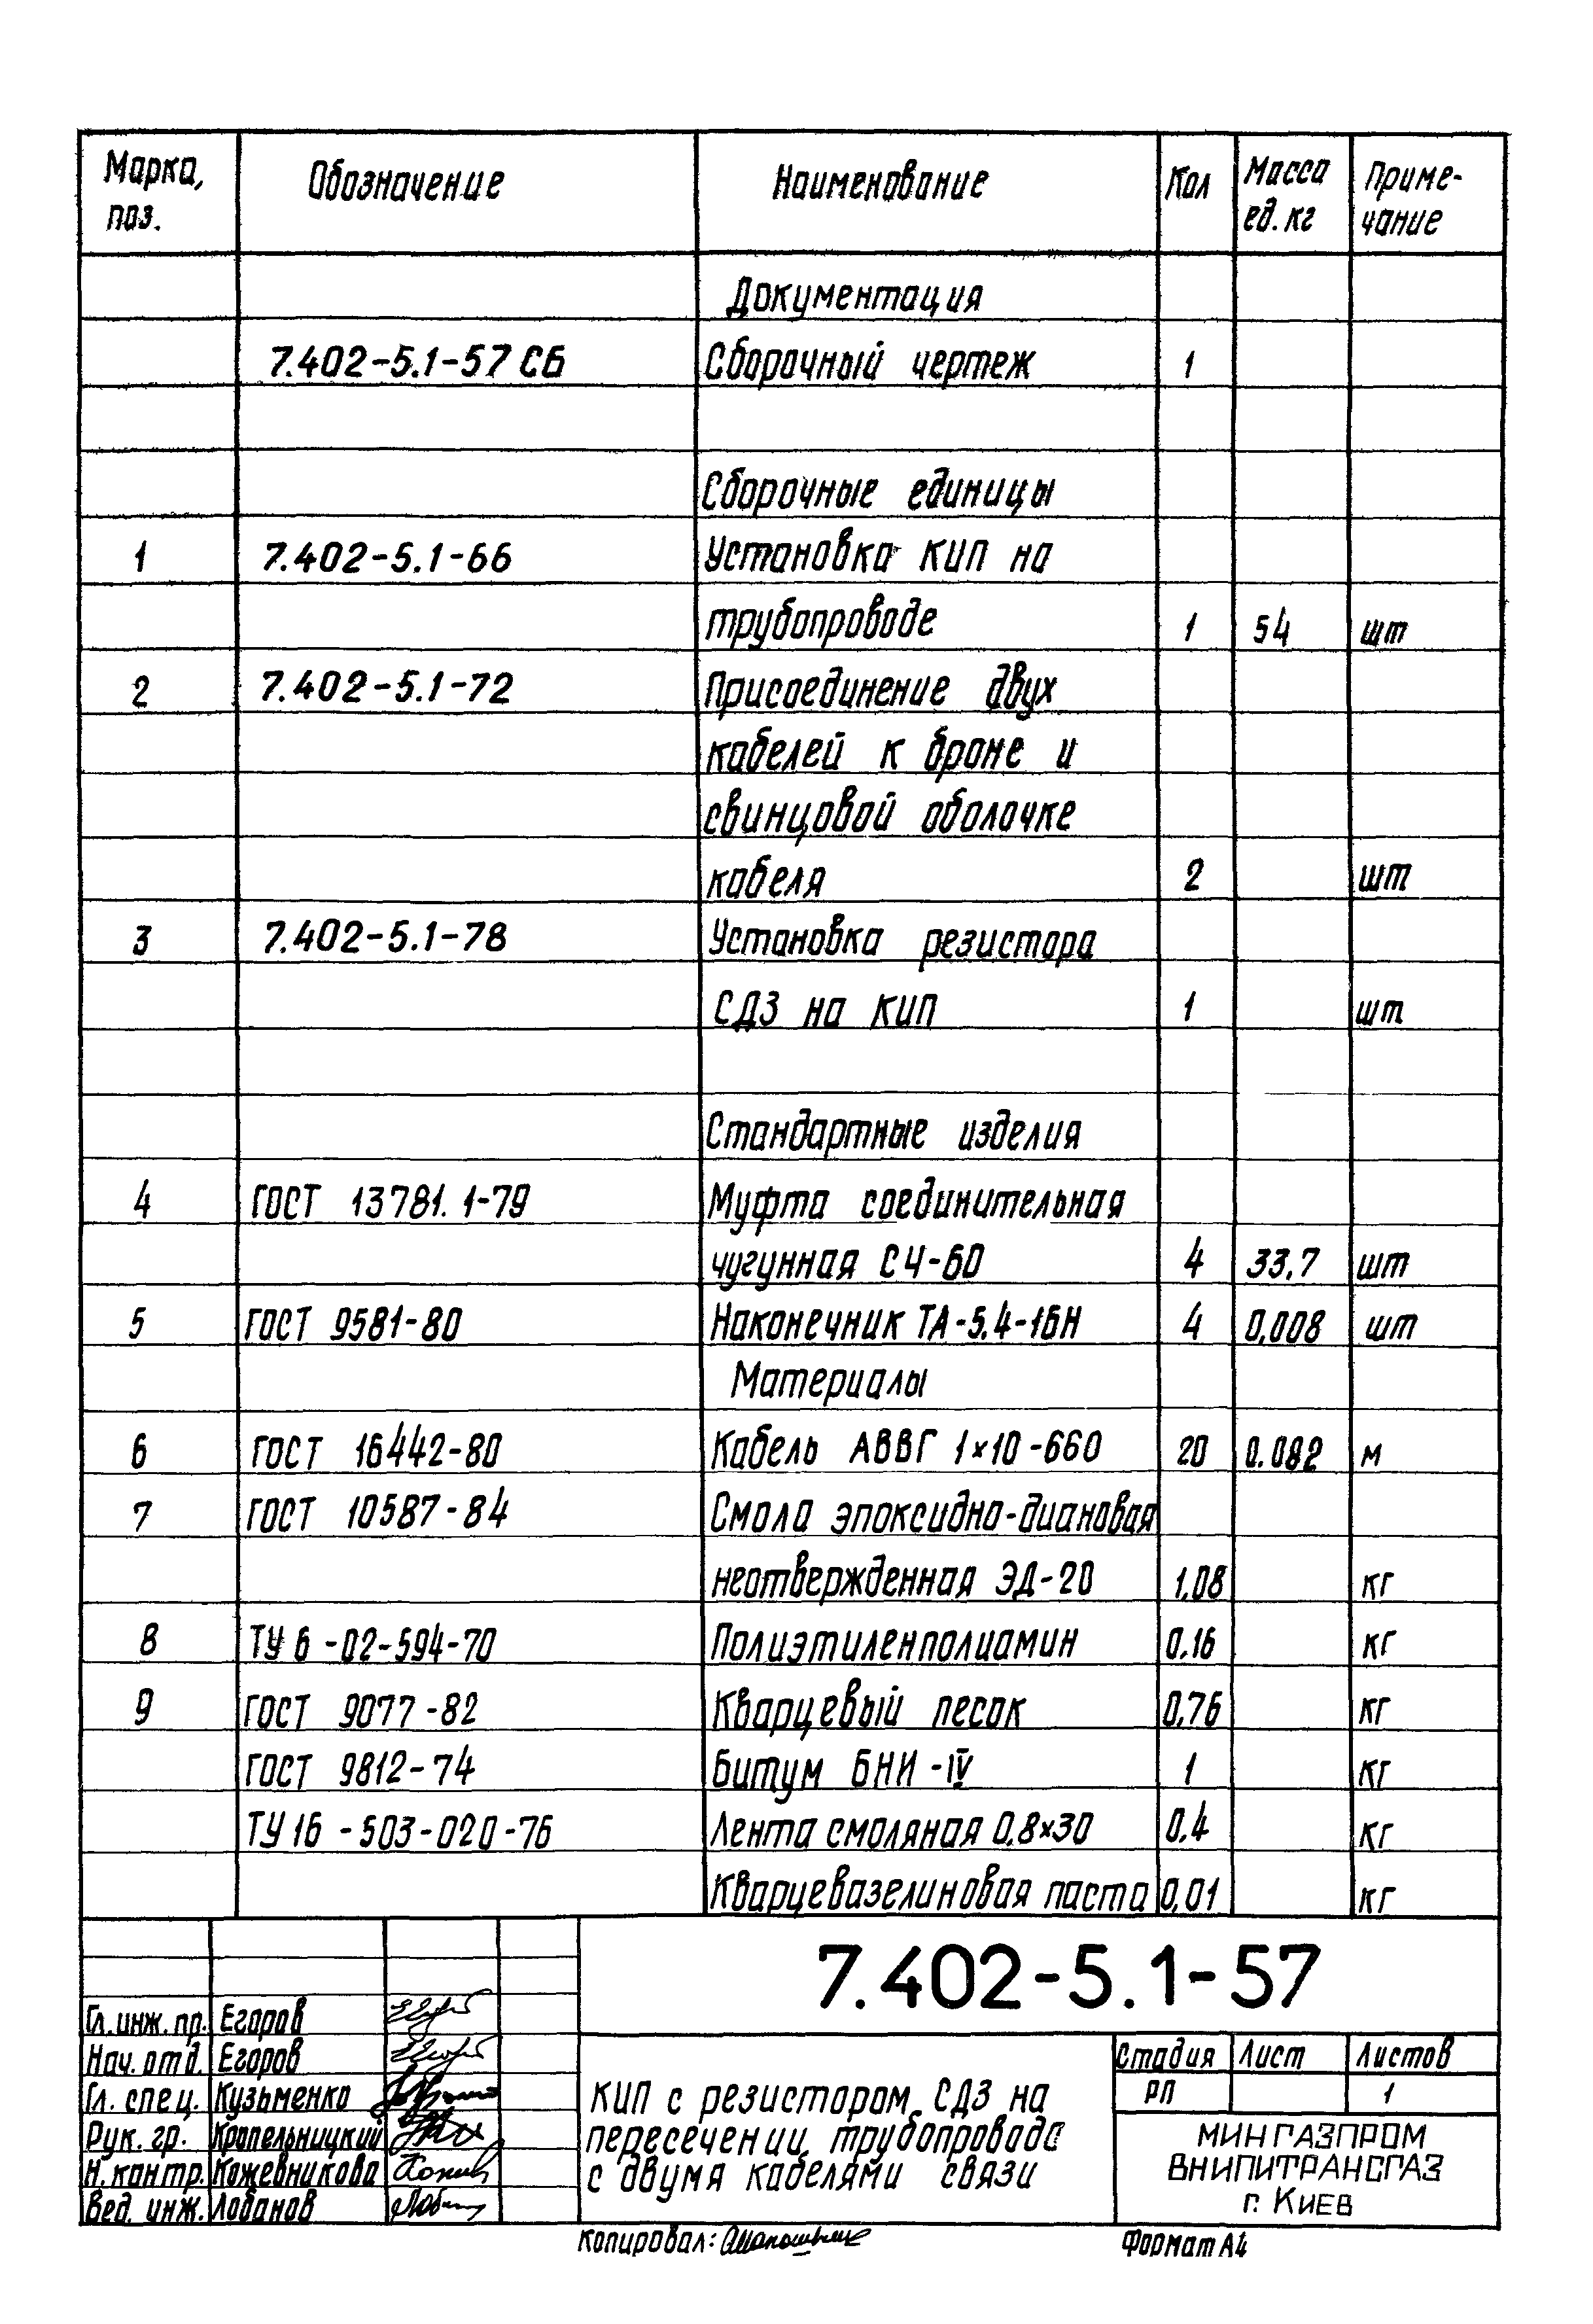 Марка, поз. Обозначение Наименование Кол Масса ед. кг Приме-чание
Документация
7.402-5.1-57 СБ Сборочный чертеж 1
Сборочные единицы
1 7.402-5.1-66 Установка КИП на
трубопроводе 1 54 шт
2 7.402-5.1-72 Присоединение двух
кабелей к броне и
свинцовой оболочке
кабеля 2 шт
3 7.402-5.1-78 Установка резистора
СДЗ на КИП 1 шт
Стандартные изделия
4 ГОСТ 13781.1-79 Муфта соединительная
чугунная СЧ-60 4 33,7 шт
5 ГОСТ 9581-80 Наконечник ТА-5.4-16Н 4 0,008 шт
Материалы
6 ГОСТ 16442-80 Кабель АВВГ 1×10-660 20 0.082 м
7 ГОСТ 10587-84 Смола эпоксидно-диановая
неотвержденная ЭД-20 1,08 кг
8 ТУ 6-02-594-70 Полиэтиленполиамин 0,16 кг
9 ГОСТ 9077-82 Кварцевый песок 0,76 кг
ГОСТ 9812-74 Битум БНИ-IV 1 кг
ТУ 16-503-020-76 Лента смоляная 0,8×30 0,4 кг
Кварцевазелиновая паста 0,01 кг
7.402-5.1-57
Гл. инж. пр. Егоров
Нач. отд. Егоров
Гл. спец. Кузьменко
Рук. гр. Кропельницкий
Н. контр. Кожевникова
Вед. инж. Лобанов
КИП с резистором СДЗ на
пересечении трубопровода
с двумя кабелями связи
Стадия Лист Листов
РП 1
МИНГАЗПРОМ
ВНИПИТРАНСГАЗ
г. Киев
Копировал:
Формат А4